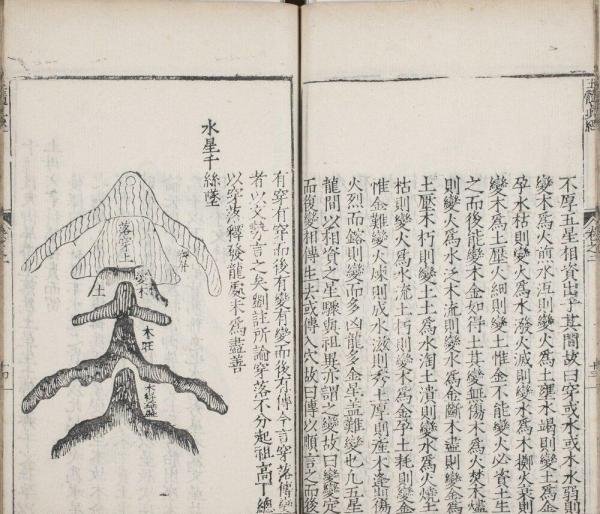 不厚五星相資出于其間故曰穿或水或木水弱則
變木爲火前水涸則變火爲土壅水竭則變土爲金
孕水枯則變火爲水潑火滅則變水爲木掤火衰則
變木爲土壓火細則變土惟金不能變火必資土生
之而後能變木金如得土其變無傷木爲火焚木爐
則變火爲水泛木流則變水爲金斷木盡則變金爲
土壓木朽則變土土爲水淘土潰則變水爲火煙土
枯則變火爲水流土朽則變木爲金孕土耗則變金
惟金難變火煉則成水滋則秀土厚則產木逢則傷
火烈而鎔則變而多凶龍多金星蓋難變也凡五星
龍間以相資之星驟與祖異亦謂之變故曰變變定
而復變相傳生去或傳入穴故曰傳以順言之而後
有穿有穿而後有變有變而後有傳今言穿落傳變
者以文勢言之矣劍註所論穿落不分起祖高丁總
以穿落釋發龍處未爲盡善
水星千絲墜
落穿土
土
木
木